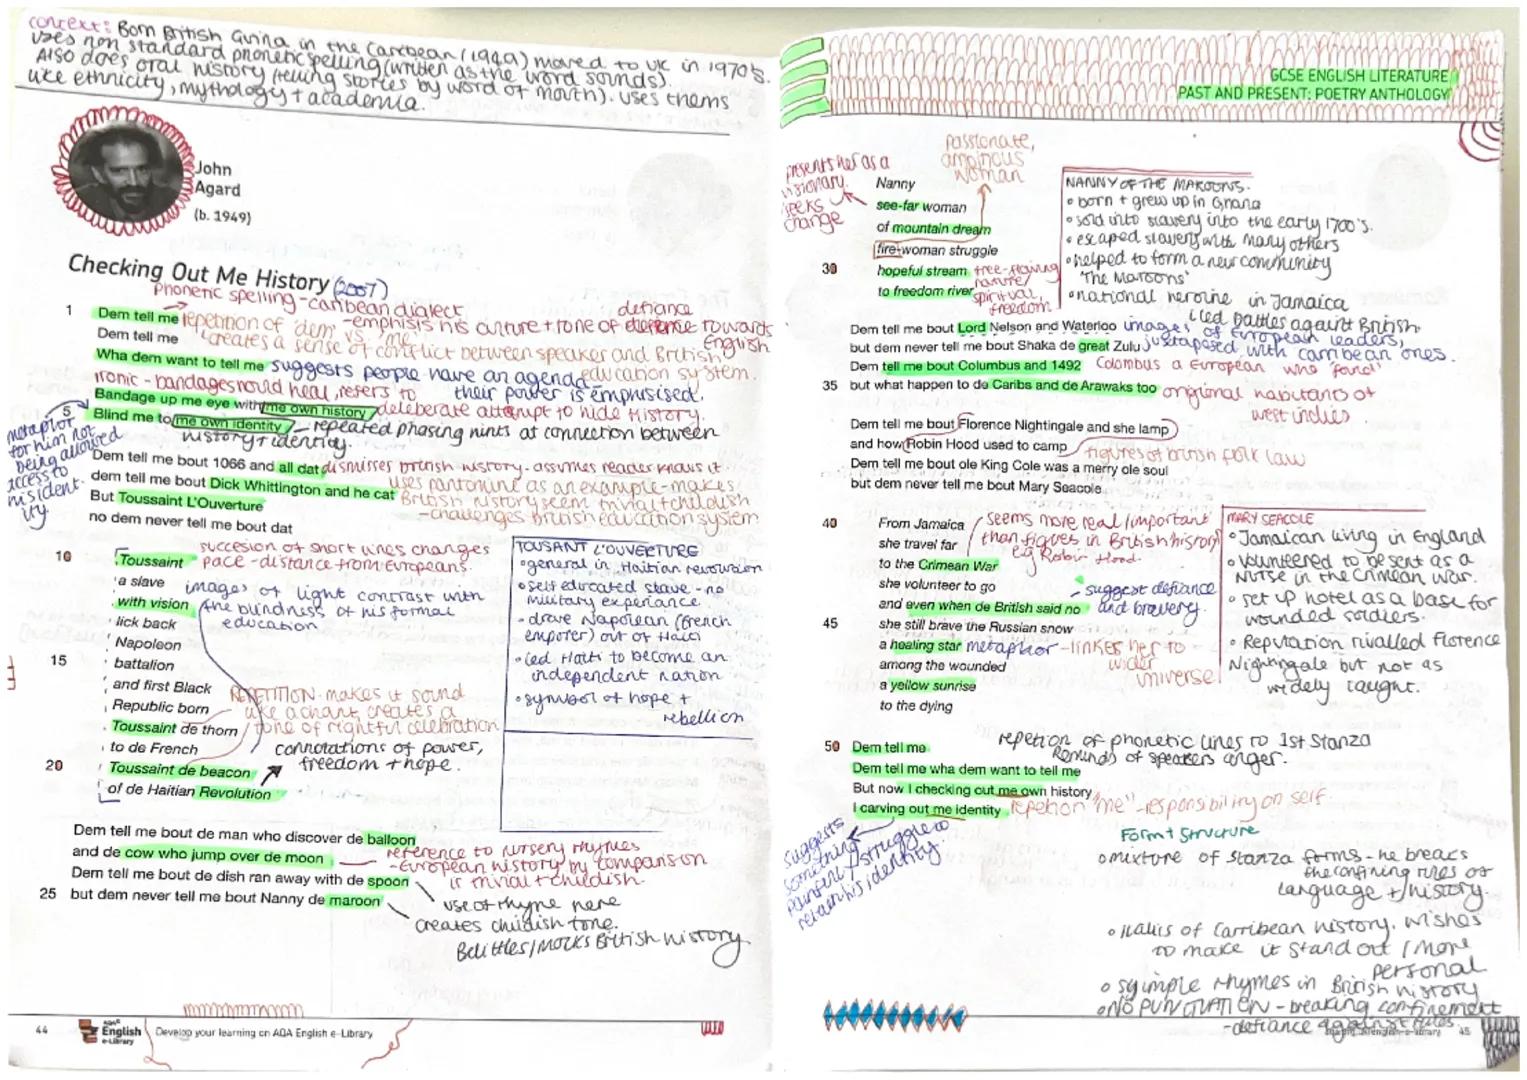 context: Born British Guina in the Carribean (1949) moved to UK in 1970's.
uses non standard phonetic spelling (written as the word sounds).
Also does oral history (telling stories by word of mouth). uses thems
like ethnicity, mythology + academia.
John
Agard
(b. 1949)
Checking Out Me History (2007)
phonetic spelling - caribean dialect
defiance
1 Dem tell me repetition of 'dem' - emphisis his culture + tone of defence towards
vs. "me"
English
Dem tell me creates a sense of conflict between speaker and British
education system.
Wha dem want to tell me suggests people have an agenda -
ironic - bandages would heal, refers to their power is emphisised.
Bandage up me eye with me own history deliberate attempt to hide History.
5 Blind me to me own identity - repeated phasing hints at connection between
history + identity.
metaphor
for him not
being allowed
access to
his ident-
ity
Dem tell me bout 1066 and all dat dismisses british history - assumes reader knows it
dem tell me bout Dick Whittington and he cat uses pantomime as an example - makes
But Toussaint L'Ouverture British history seem trivial + childish
no dem never tell me bout dat - challenges british education system
succesion of short lines changes
pace - distance from Europeans.
10 Toussaint
a slave
images of light contrast with
with vision the blindness of his formal
education
lick back
Napoleon
15 battalion
and first Black
Republic born
REPETITION - makes it sound
like a chant, creates a
tone of rightful celebration
Toussaint de thorn
to de French
connotations of power,
freedom + hope.
20 Toussaint de beacon
of de Haitian Revolution
TOUSANT L'OUVERTURE
• general in Haitian revolution
• self educated slave - no
military experiance.
• drove Napolean (french
emporer) out of Haiti
• led Haiti to become an
independent nation
• symbol of hope +
rebellion
Dem tell me bout de man who discover de balloon
and de cow who jump over de moon
Dem tell me bout de dish ran away with de spoon
25 but dem never tell me bout Nanny de maroon
reference to nursery rhymes
- European history by comparison
is trivial + childish.
use of rhyme here
creates childish tone.
Belittles/mocks British history
44
AQA
English
e-Library
Develop your learning on AQA English e-Library
GCSE ENGLISH LITERATURE
PAST AND PRESENT: POETRY ANTHOLOGY
presents her as a
visionary.
seeks
change
passionate,
ambitious
woman
Nanny
see-far woman
of mountain dream
fire-woman struggle
30 hopeful stream free-flowing
nature/
to freedom river spiritual,
freedom
NANNY OF THE MAROONS.
• born + grew up in Ghana
• sold into slavery into the early 1700's.
• escaped slavery with many others
• helped to form a new community
'The Maroons'
• national heroine in Jamaica
, led battles againt British.
Dem tell me bout Lord Nelson and Waterloo images of European leaders,
but dem never tell me bout Shaka de great Zulu juxtaposed with carribean ones.
Dem tell me bout Columbus and 1492 Colombus a European who 'found'
35 but what happen to de Caribs and de Arawaks too origional habitants of
west indies
Dem tell me bout Florence Nightingale and she lamp
and how Robin Hood used to camp figures of british folk law
Dem tell me bout ole King Cole was a merry ole soul
but dem never tell me bout Mary Seacole
40 From Jamaica
she travel far
to the Crimean War
she volunteer to go
and even when de British said no
45 she still brave the Russian snow
a healing star metaphor - linkes her to
wider
universe
among the wounded
a yellow sunrise
to the dying
seems more real/important
than figures in British history
e.g Robin Hood.
suggest defiance
and bravery.
MARY SEACOLE
• Jamaican living in England
• volunteered to be sent as a
nurse in the Crimean War.
• set up hotel as a base for
wounded soldiers.
• Reputation rivalled Florence
Nightingale but not as
widely taught.
50 Dem tell me
Dem tell me wha dem want to tell me
But now I checking out me own history
I carving out me identity repetion "me" - responsibility on self.
repetion of phonetic lines to 1st Stanza
Reminds of speakers anger.
suggests
something
painful/struggle to
retain his identity.
Form + Structure
• mixture of stanza forms - he breaks
the confining rules of
language + history.
• italics of Carribean history. wishes
to make it stand out / more
personal
• syimple rhymes in British history
• NO PUNCTUATION - breaking confinement
- defiance against rules.
45